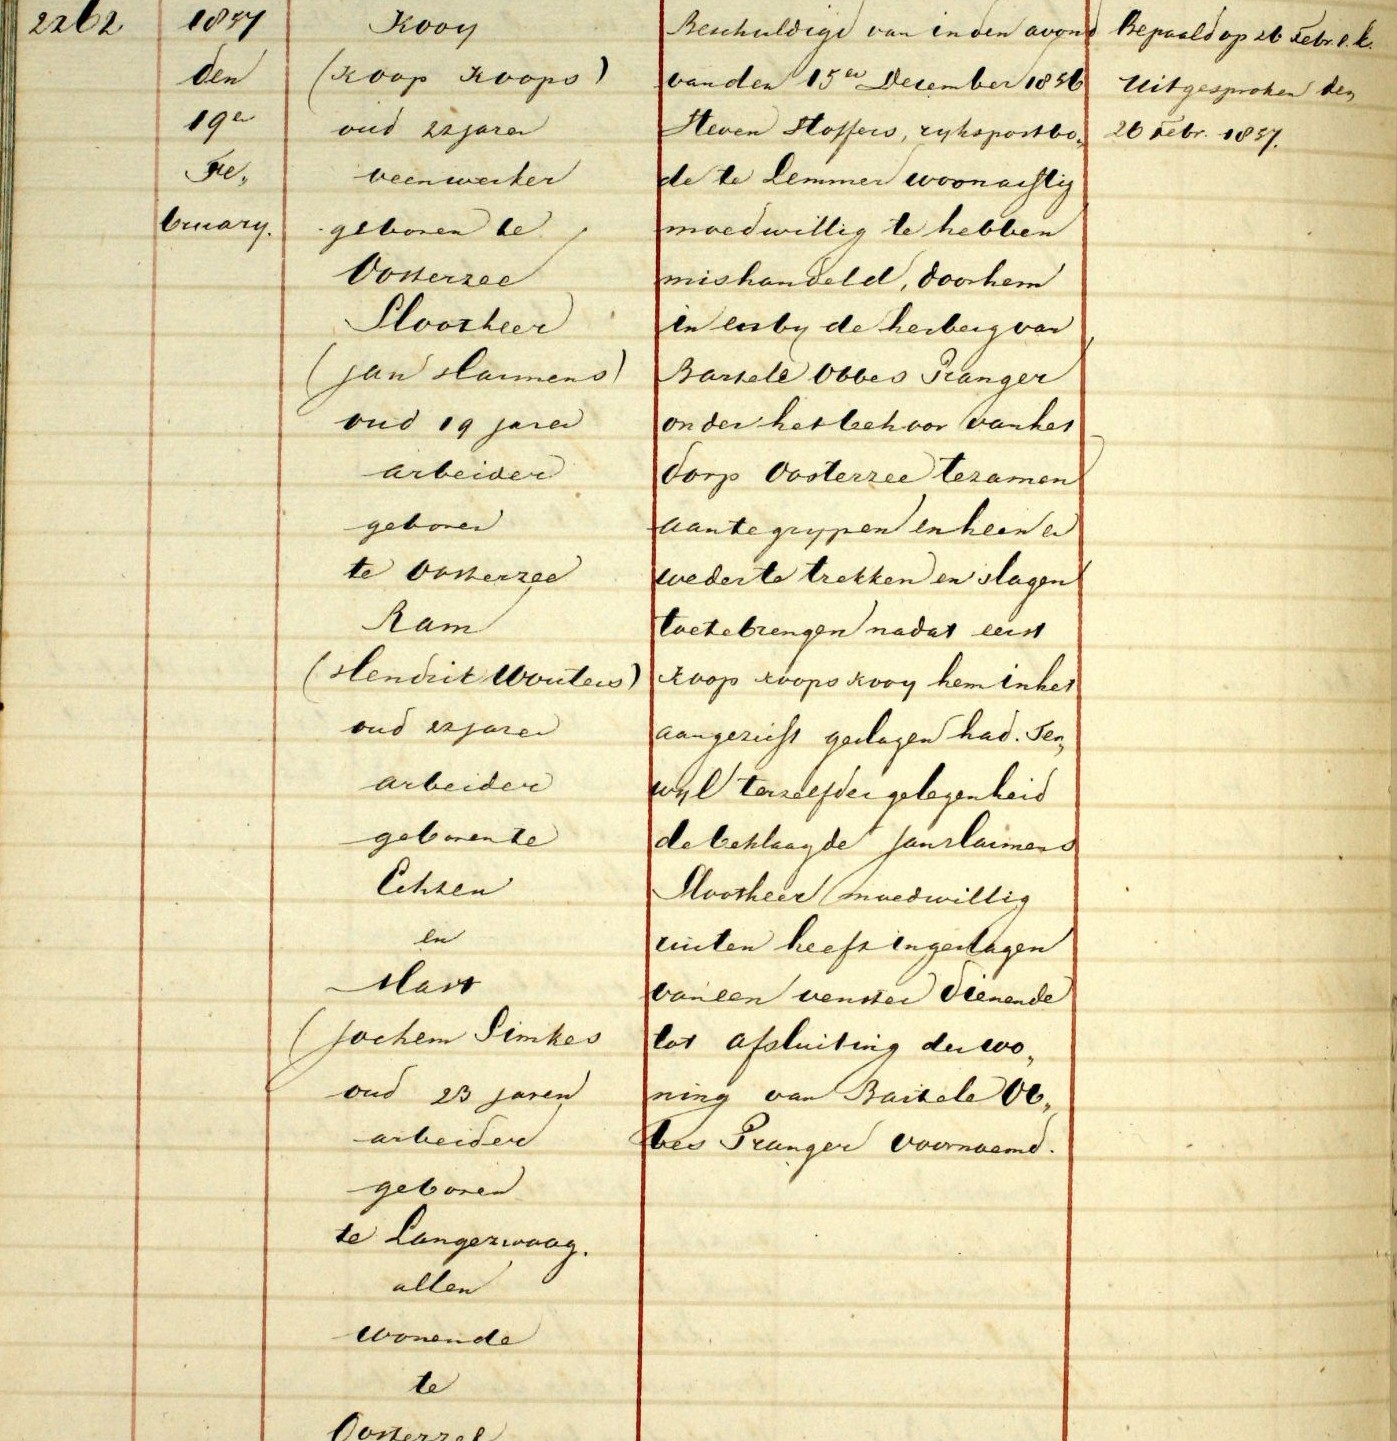 2262
1857
den
19en
Fe„
bruary.
Kooy
(Koop Koops)
oud 22 jaren
veenwerker
geboren te
Oosterzee
Slootheer
(Jan Harmens)
oud 19 jaren
arbeider
geboren
te Oosterzee
Ram
(Hendrik Wouters)
oud 22 jaren
arbeider
geboren te
Echten
en
Hart
(Jochem Simkes
oud 23 jaren
arbeider
geboren
te Langezwaag.
allen
wonende
te
Oosterzee
Beschuldigd van in den avond
van den 15en December 1856
Steven Stoffers, rykspostbo„
de te Lemmer woonachtig
moedwillig te hebben
mishandeld, door hem
in en by de herberg van
Bartele Obbes Pranger
onder het behoor van het
dorp Oosterzee tezamen
aan te grypen en heen en
weder te trekken en slagen
toe te brengen nadat eerst
Koop Koops Kooy hem in het
aangezicht geslagen had. Ter„
wyl terzelfder gelegenheid
de beklaagde Jan Harmens
Slootheer moedwillig
ruiten heeft ingeslagen
van een venster dienende
tot afsluiting der wo„
ning van Bartele Ob„
bes Pranger voornoemd.
Bepaald op 26 Febr. e.k.
Uitgesproken den
26 Febr. 1857.